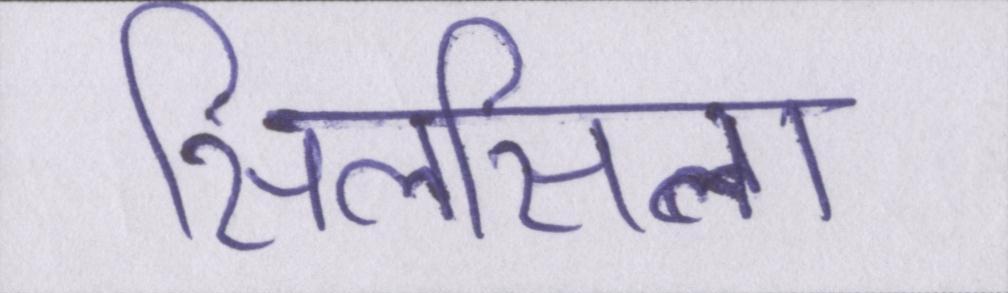 सिलसिला